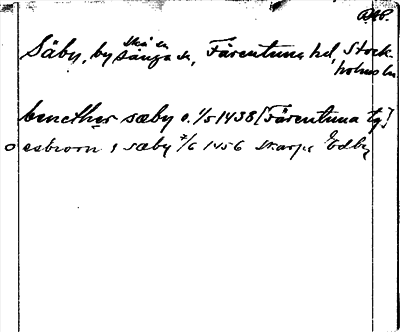 Säby, by Skå en
Sånga sn, Färentuna hd, Stock-
holms ln
benether sæby o. 1/5 1438 [Färentuna tg]
esbiorn i sæby 7/6 1456 Edby